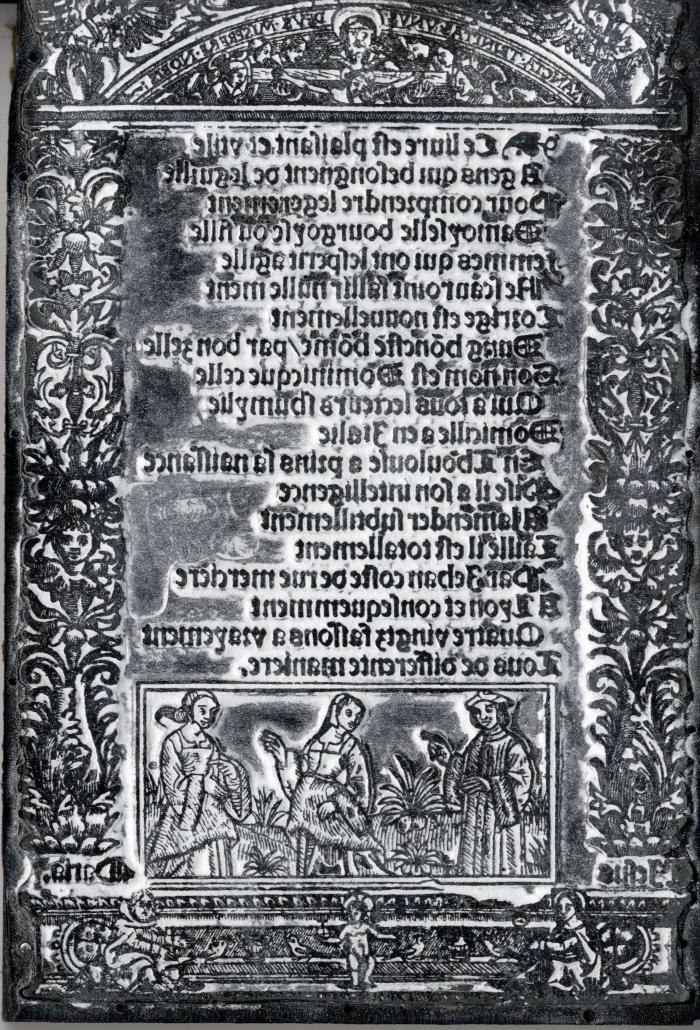 SANCTA·TRINITAS·VNVS·DEVS·MISERERE·NOBIS
Ce liure est plaisant et vtile
A gens qui besongnent de leguille
Pour comprendre legerement
Damoyselle bourgoyse ou fille
femmes qui ont lesperit agille
Ne scauroint faillir nulle ment
Corrige est nouuellement
Dung hõneste hõme/par bon zelle
Son nom est Dominicque celle
Qui a tous lecteurs shumylie
Domicille a en Italie
En Thoulouse a prins sa naissance
Mise il a son intelligence
A lamender subtillement
Taillé il est totallement
Par Jehan coste de rue merciere
A Lyon et consequemment
Quatre vingtz fassons a vrayement
Tous de differente maniere.
Jesus Maria.